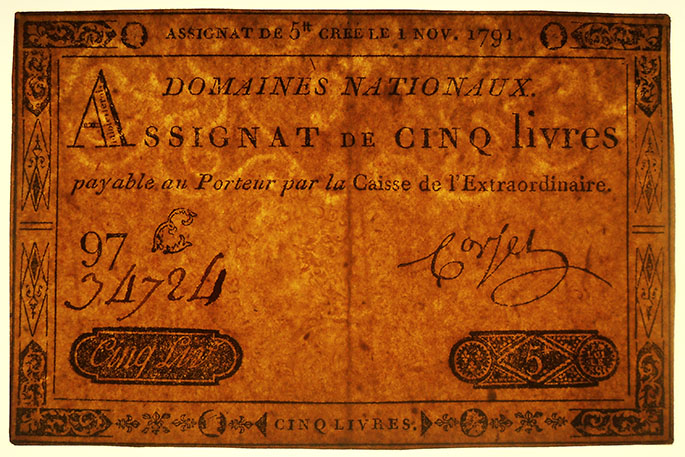 ASSIGNAT DE 5ᵗᵗ CRÉÉ LE 1 NOV. 1791.
DOMAINES NATIONAUX.
ASSIGNAT DE CINQ livres
payable au Porteur par la Caisse de l'Extraordinaire.
97 C
34724
Corsel
Cinq Liv
5
CINQ LIVRES.